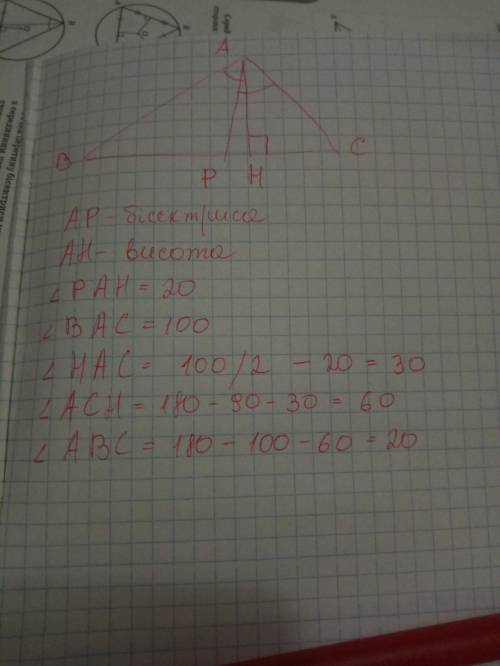 A
B
C
P H
AP - бісектриса
AH - висота
∠ PAH = 20
∠ BAC = 100
∠ HAC = 100/2 - 20 = 30
∠ ACH = 180 - 90 - 30 = 60
∠ ABC = 180 - 100 - 60 = 20